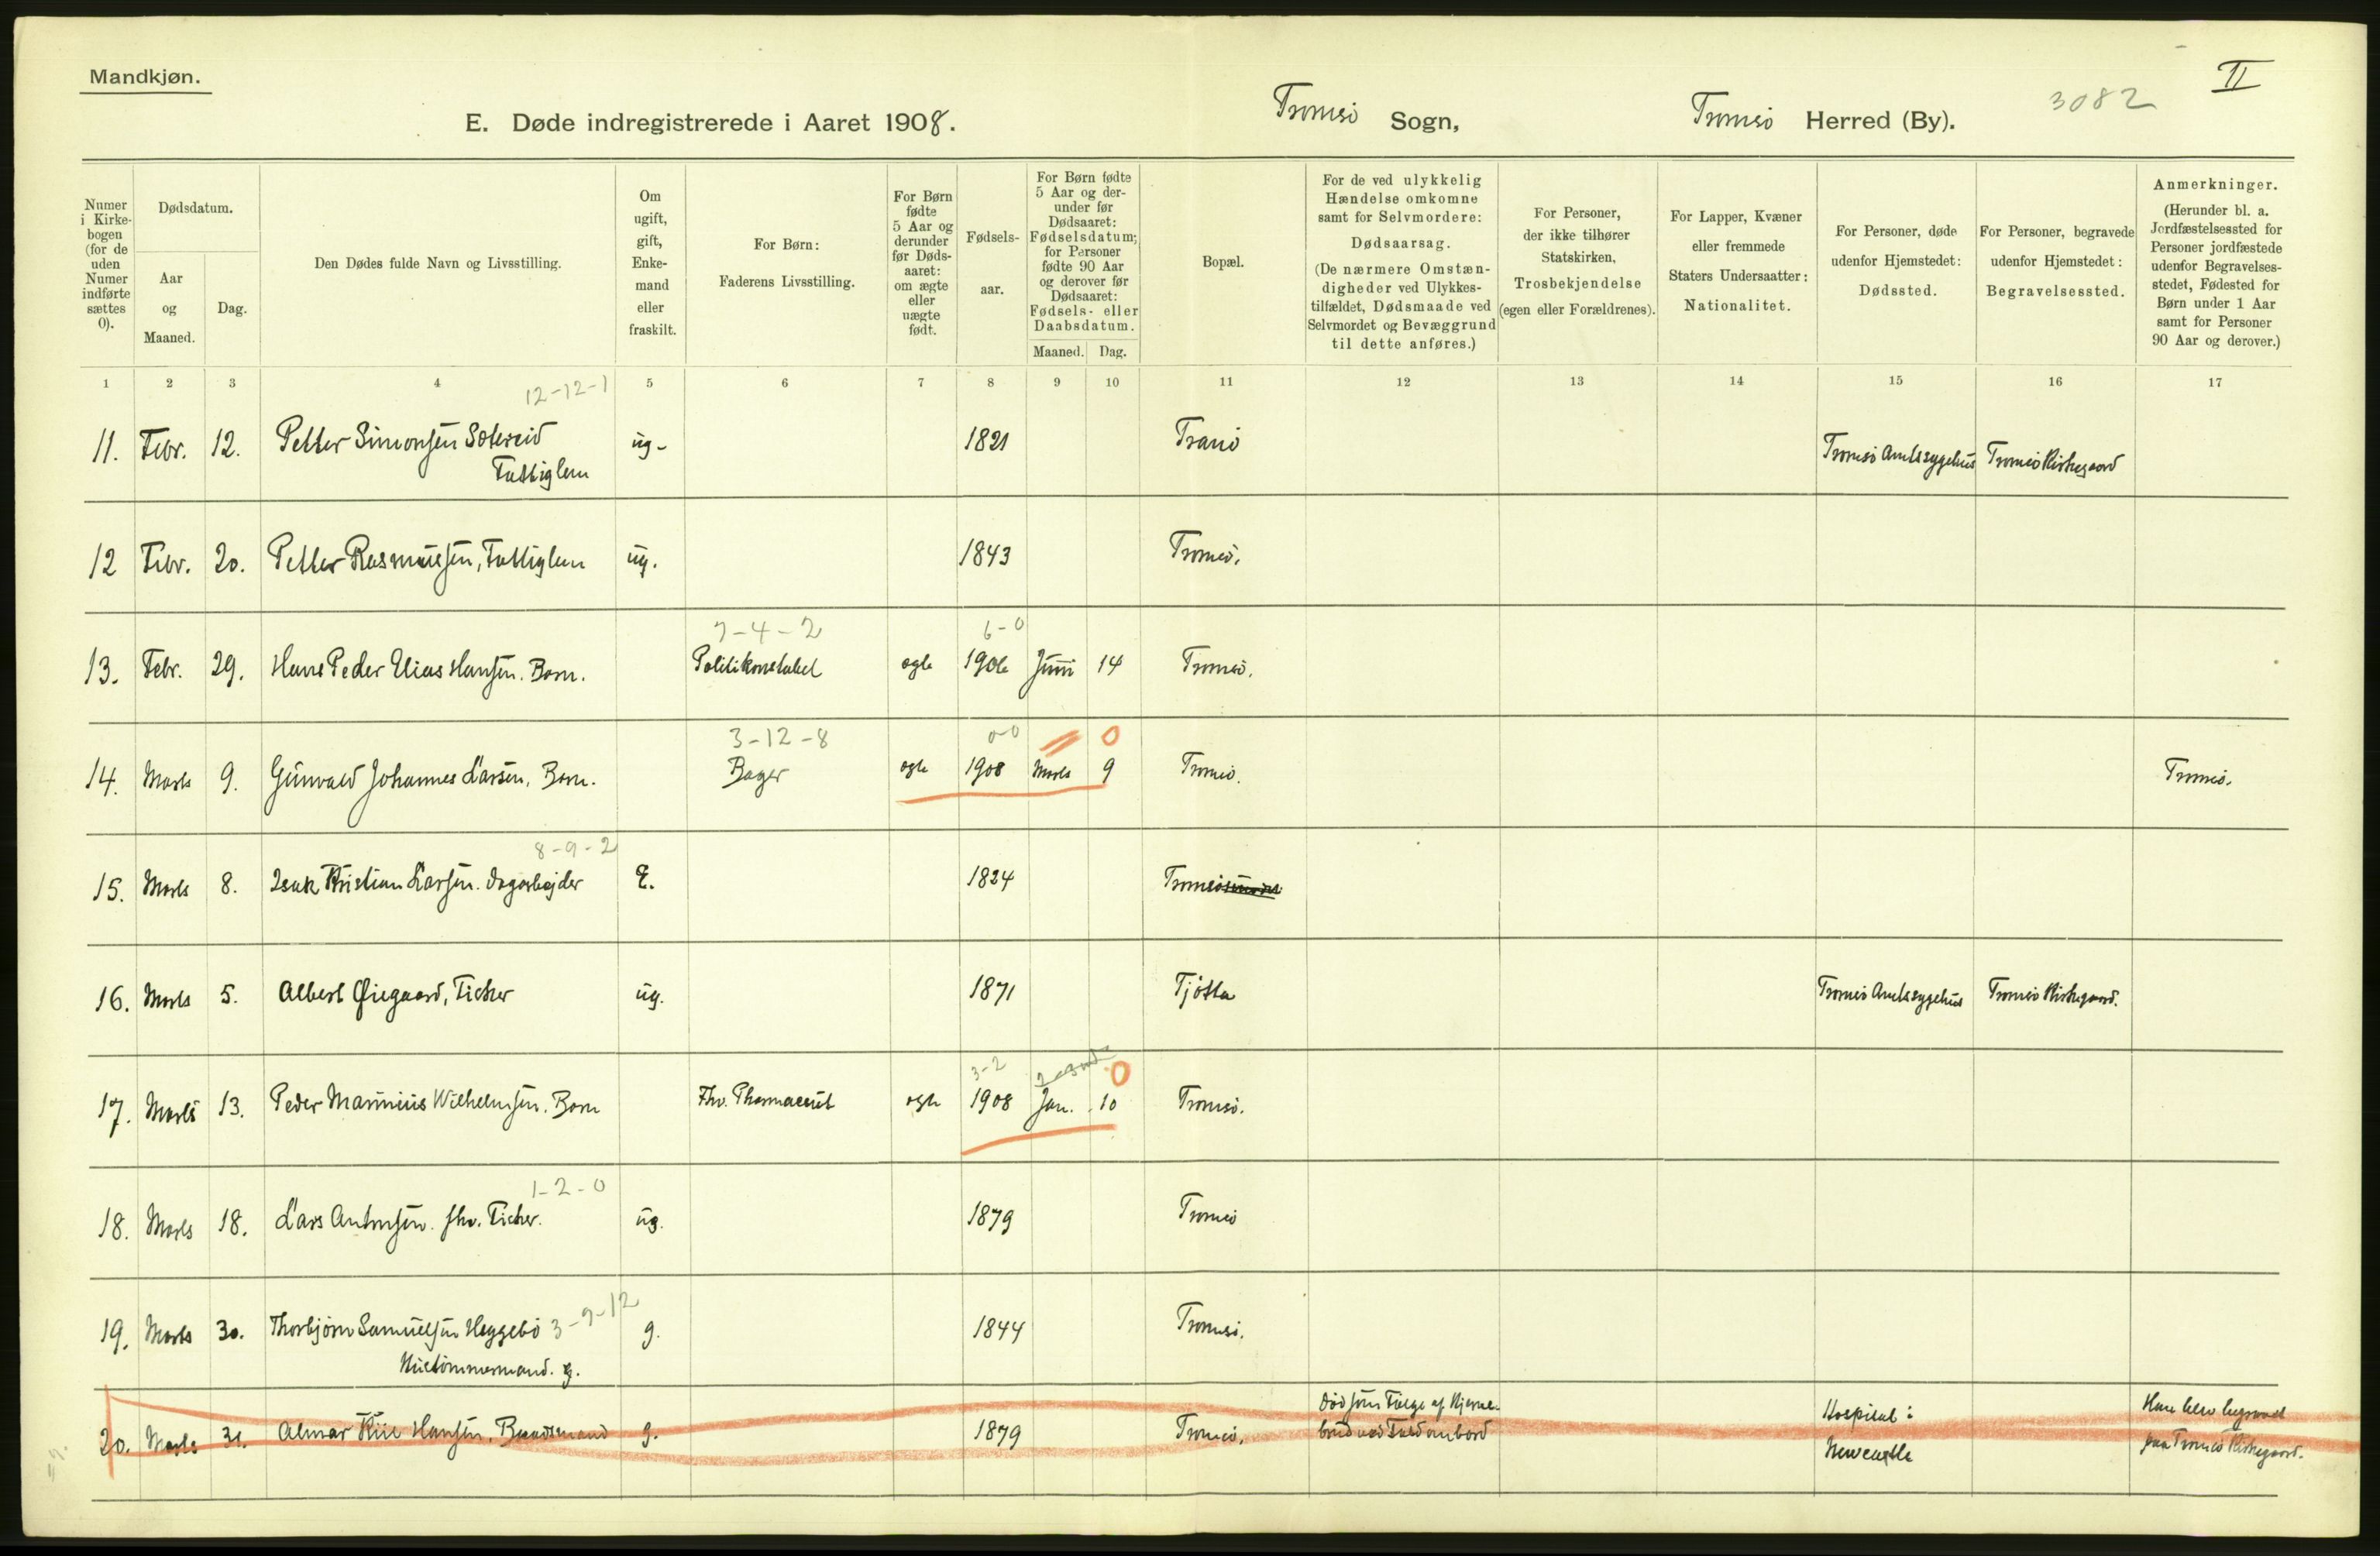 Mandkjøn.
II
3082
E. Døde indregistrerede i Aaret 1908.
Tromsø Sogn,
Tromsø Herred (By).
Numer i Kirke- bogen (for de uden Numer indførte sættes 0).
Dødsdatum.
Aar og Maaned.
Dag.
Den Dødes fulde Navn og Livsstilling.
Om ugift, gift, Enke- mand eller fraskilt.
For Børn: Faderens Livsstilling.
For Børn fødte 5 Aar og derunder før Døds- aaret: om ægte eller uægte født.
Fødsels- aar.
For Børn fødte 5 Aar og der- under før Dødsaaret: Fødselsdatum; for Personer fødte 90 Aar og derover før Dødsaaret: Fødsels- eller Daabsdatum.
Maaned. Dag.
Bopæl.
For de ved ulykkelig Hændelse omkomne samt for Selvmordere: Dødsaarsag. (De nærmere Omstæn- digheder ved Ulykkes- tilfældet, Dødsmaade ved Selvmordet og Bevæggrund til dette anføres.)
For Personer, der ikke tilhører Statskirken, Trosbekjendelse (egen eller Forældrenes).
For Lapper, Kvæner eller fremmede Staters Undersaatter: Nationalitet.
For Personer, døde udenfor Hjemstedet: Dødssted.
For Personer, begravede udenfor Hjemstedet: Begravelsessted.
Anmerkninger. (Herunder bl. a. Jordfæstelsessted for Personer jordfæstede udenfor Begravelses- stedet, Fødested for Børn under 1 Aar samt for Personer 90 Aar og derover.)
1 2 3 4 5 6 7 8 9 10 11 12 13 14 15 16 17
12-12-1
11. Febr. 12. Petter Simonsen ug- 1821 Tranø Tromsø Amtssygehus Tromsø Kirkegaard
Fattiglem
12 Febr. 20. Petter Rasmussen, Fattiglem ug. 1843 Tromsø.
7-4-2 6-0
13. Febr. 29. Hans Peder Elias Hansen. Barn. Politikonstabel ægte 1906 Juni 14 Tromsø.
3-12-8 0-0 0
14. Marts 9. Gunvald Johannes Larsen, Barn. Bager ægte 1908 Marts 9 Tromsø. Tromsø.
8-9-2
15. Marts 8. Isak Kristian Larsen. Dagarbejder E. 1824 Tromsøsundet
16. Marts 5. Albert Øiegaard, Fisker ug. 1871 Tjøtta Tromsø Amtssygehus Tromsø Kirkegaard.
3-2 0
17. Marts 13. Peder Marinius Wilhelmsen. Barn Fhv. Pharmaceut ægte 1908 Jan. 10 Tromsø.
1-2-0
18. Marts 18. Lars Antonsen. fhv. Fisker. ug. 1879 Tromsø
19. Marts 30. Thorbjørn Samuelsen Heggebø 3-9-12 g. 1844 Tromsø.
Hustømmermand. g.
20. Marts 31. Almar Hansen, Baadsmand g. 1879 Tromsø. Død som Følge af Hjerne- Hospital i Han blev begravet
brud ved Fald ombord Newcastle paa Tromsø Kirkegaard.